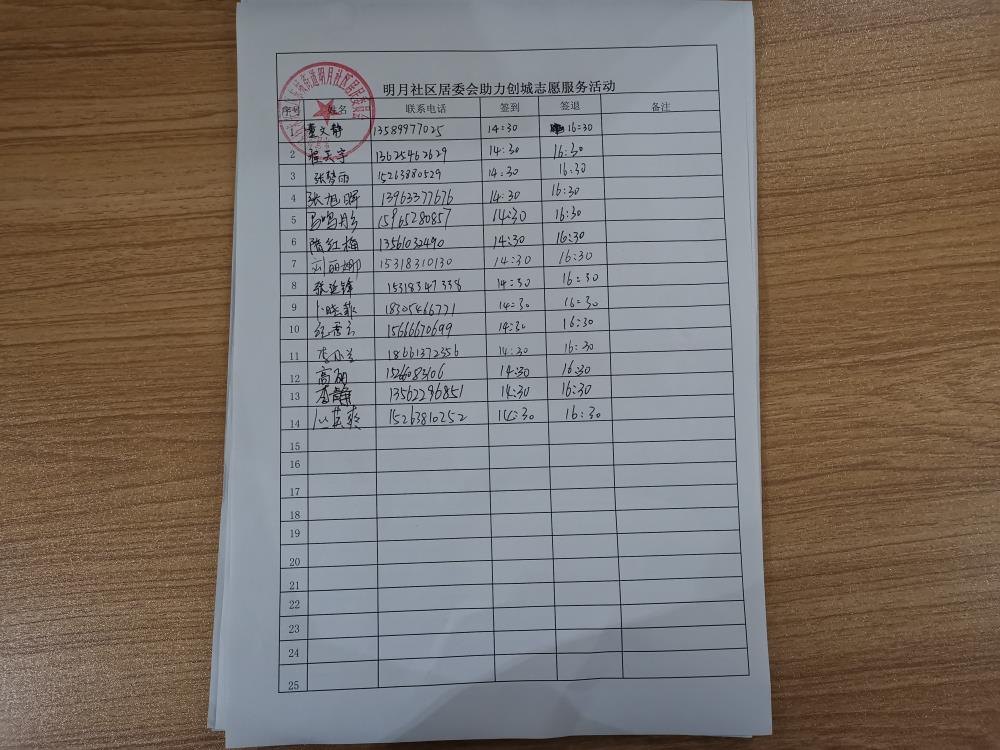 明月社区居委会助力创城志愿服务活动
序号 姓名 联系电话 签到 签退 备注
1 董文静 13589977025 14:30 16:30
2 程天宇 13625462629 14:30 16:30
3 张梦雨 15263880529 14:30 16:30
4 张旭晖 13963377676 14:30 16:30
5 15965280857 14:30 16:30
6 隋红梅 13561032490 14:30 16:30
7 刘丽娜 15318310130 14:30 16:30
8 张延锋 15318347338 14:30 16:30
9 卜晓菲 18305466771 14:30 16:30
10 15666670699 14:30 16:30
11 18661372356 14:30 16:30
12 高丽 14:30 16:30
13 李静 13562296851 14:30 16:30
14 15263810252 14:30 16:30
15
16
17
18
19
20
21
22
23
24
25